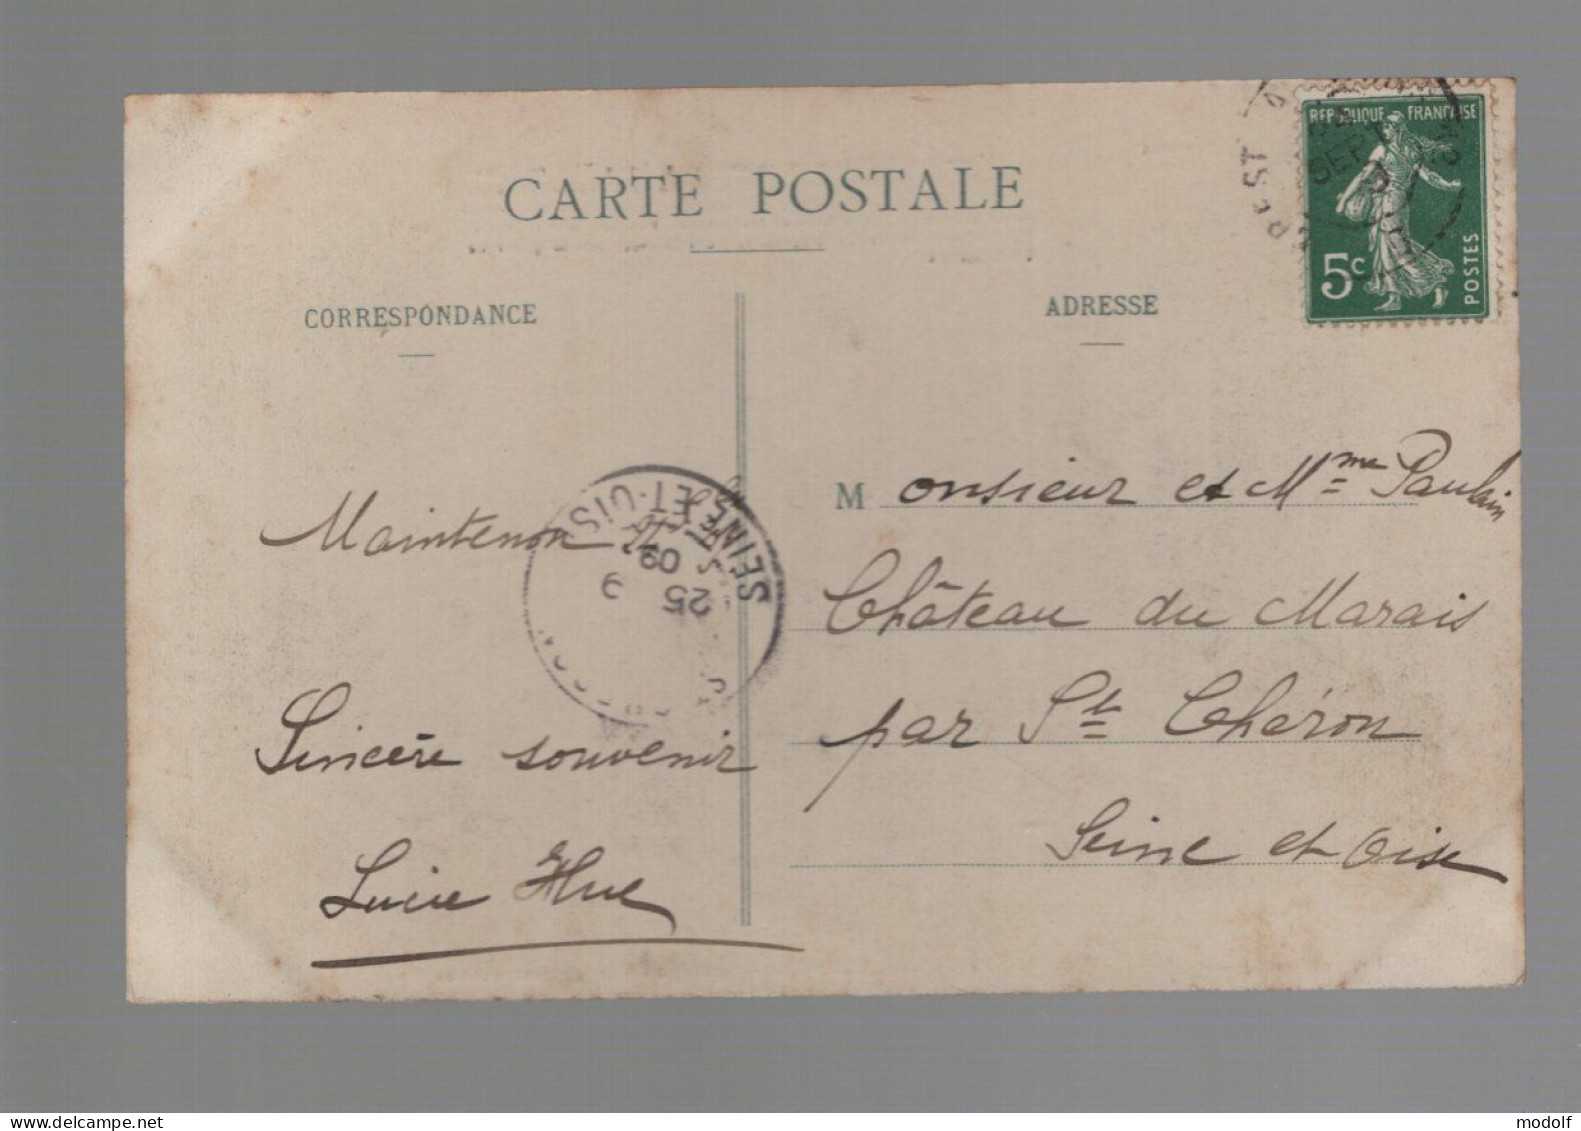 CARTE POSTALE
CORRESPONDANCE
ADRESSE
REPUBLIQUE FRANÇAISE
5c
POSTES
SEPT
SEINE-ET-OISE
25
9
09
Maintenon
Sincère souvenir
Lucie Hue
Monsieur et Mme Paulain
Château du Marais
par St Chéron
Seine et Oise
www.delcampe.net
modolf